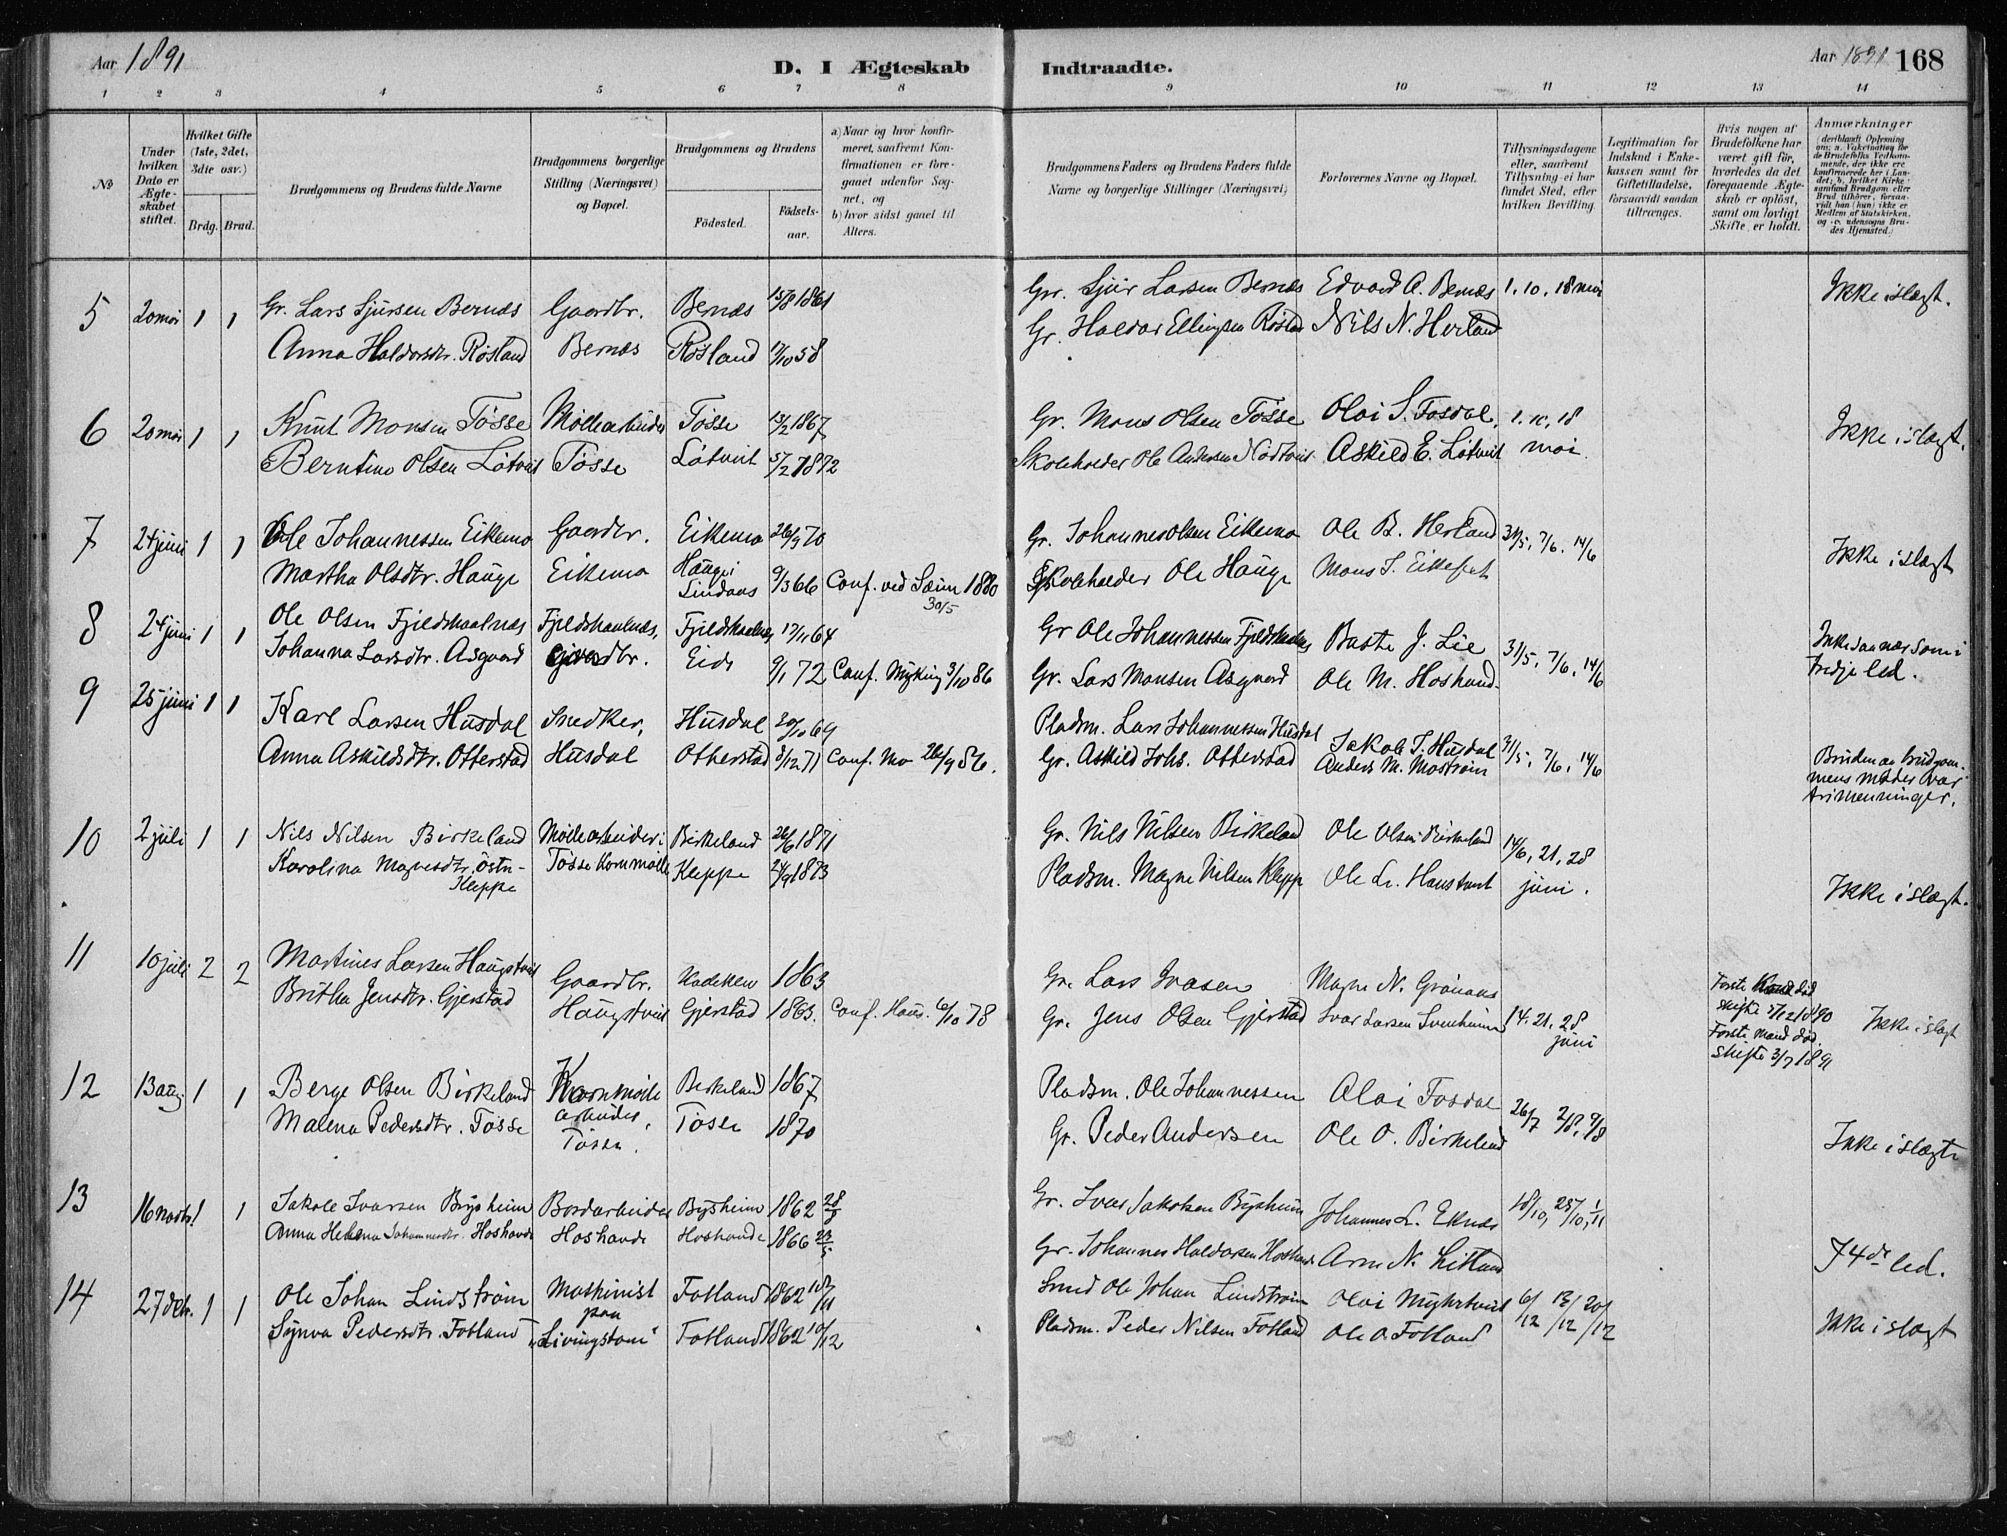 Aar 1891
D. I Ægteskab
Indtraadte.
Aar 1891 168
1 2 3 4 5 6 7 8 9 10 11 12 13 14
No
Under hvilken Dato er Ægteskabet stiftet.
Hvilket Gifte (1ste, 2det, 3die osv.)
Brdg. Brud.
Brudgommens og Brudens fulde Navne
Brudgommens borgerlige Stilling (Næringsvei) og Bopæl.
Brudgommens og Brudens
Fødested.
Fødselsaar.
a) Naar og hvor konfirmeret, saafremt Konfirmationen er foregaaet udenfor Sognet, og
b) hvor sidst gaaet til Alters.
Brudgommens Faders og Brudens Faders fulde Navne og borgerlige Stillinger (Næringsvei)
Forlovernes Navne og Bopæl.
Tillysningsdagene eller, saafremt Tillysning ei har fundet Sted, efter hvilken Bevilling.
Legitimation for Indskud i Enkekassen samt for Giftetilladelse, forsaavidt saadan tiltrænges.
Hvis nogen af Brudefolkene har været gift før, hvorledes da det foregaaende Ægteskab er opløst, samt om lovligt Skifte er holdt.
Anmærkninger
5 20 mai 1 1 Gr. Lars Sjursen Bernæs Gaardbr. Bernæs 15/8 1861 Gr. Sjur Larsen Bernæs Edvard A. Bernæs 1. 10. 18 mai Ikke i slægt.
Anna Haldorsdtr. Røsland Bernæs Røsland 17/10 58 Gr. Haldor Ellingsen Røsland Nils N. Herland
6 20 mai 1 1 Knut Monsen Tøsse Møllearbeider Tøsse 13/2 1867 Gr. Mons Olsen Tøsse Olai S. Fosdal 1. 10. 18 Ikke i slægt.
Berntine Olsen Løtveit Tøsse Løtveit 5/2 1872 Skoleholder Ole Andersen Askild E. Løtveit mai.
7 24 juni 1 1 Ole Johannessen Eikemo Gaardbr. Eikemo 26/3 70 Gr. Johannes Olsen Eikemo Ole B. Herland 31/5, 7/6, 14/6 Ikke i slægt
Martha Olsdtr. Hauge Eikemo Hauge i Lindaas 9/3 66 Conf. ved Sæim 1880 30/5 Skoleholder Ole Hauge Mons I. Eikefet
8 24 juni 1 1 Ole Olsen Fjeldskaalnæs Fjeldskaalnæs, Fjeldskaalnæs 17/11 64 Gr Ole Johannessen Fjeldskaalnæs Baste J. Lie 31/5, 7/6, 14/6 Ikke saa nær som i
Johanna Larsdtr. Asgaard Gaardbr. Eide 9/1 72 Conf. Myking 3/10 86 Gr. Lars Monsen Asgaard Ole M. Hosland tredje led.
9 25 juni 1 1 Karl Larsen Husdal Snedker, Husdal 30/10 69 Pladsm. Lars Johannessen Husdal Jakob J. Husdal 31/5, 7/6, 14/6
Anna Askildsdtr. Otterstad Husdal Otterstad 3/12 71 Conf. Mo 26/9 86. Gr. Askild Johs. Otterstad Anders M. Mostrøm Bruden og brudgommens moder var trimenninger.
10 2 juli 1 1 Nils Nilsen Birkeland Møllearbeider i Birkeland 26/6 1871 Gr. Nils Nilsen Birkeland Ole Olsen Birkeland 14/6, 21, 28
Karolina Magnesdtr. Østn-Kleppe Tøsse Kornmølle Kleppe 24/9 1873 Pladsm. Magne Nilsen Klepp Ole L. juni. Ikke i slægt.
11 10 juli 2 2 Martines Larsen Haugstveit Gaardbr. 1863 Gr. Lars Ivarsen Magne N. Grønaas Første Kone død skifte 7/12 1890
Britha Jensdtr. Gjerstad Haugstveit Gjerstad 1863. Conf. Haus. 6/10 78 Gr. Jens Olsen Gjerstad Ivar Larsen 14. 21. 28 juni Første Mand død. skifte 3/7 1891 Ikke i slægt
12 13 aug. 1 1 Berge Olsen Birkeland Kornmølle Birkeland 1867 Pladsm. Ole Johannessen Olai Fosdal 26/7 2/8, 9/8
Malena Pedersdtr. Tøsse arbeider, Tøsse. Tøsse 1870 Gr. Peder Andersen Ole O. Birkeland Ikke i slægt
13 16 novbr. 1 1 Jakob Ivarsen Bysheim Bordarbeider Bysheim 1862 Gr. Ivar Jakobsen Bysheim Johannes L. Eknæs 18/10, 25/10, 1/11
Anna Helena Johannesdtr. Hoshovde Hoshovde Hoshovde 1866 23/5 Gr. Johannes Haldorsen Arne N. Litland I 4de led.
14 27 debr. 1 1 Ole Johan Lindstrøm Maskinist Fotland 1862 Smed Ole Johan Lindstrøm Olai Myhrtveit 6/12 13/12 20/12
Synva Pedersdtr. Fotland paa „Livingstone“ Fotland 1862 10/12 Pladsm. Peder Nilsen Fotland Ole O. Fotland Ikke i slægt